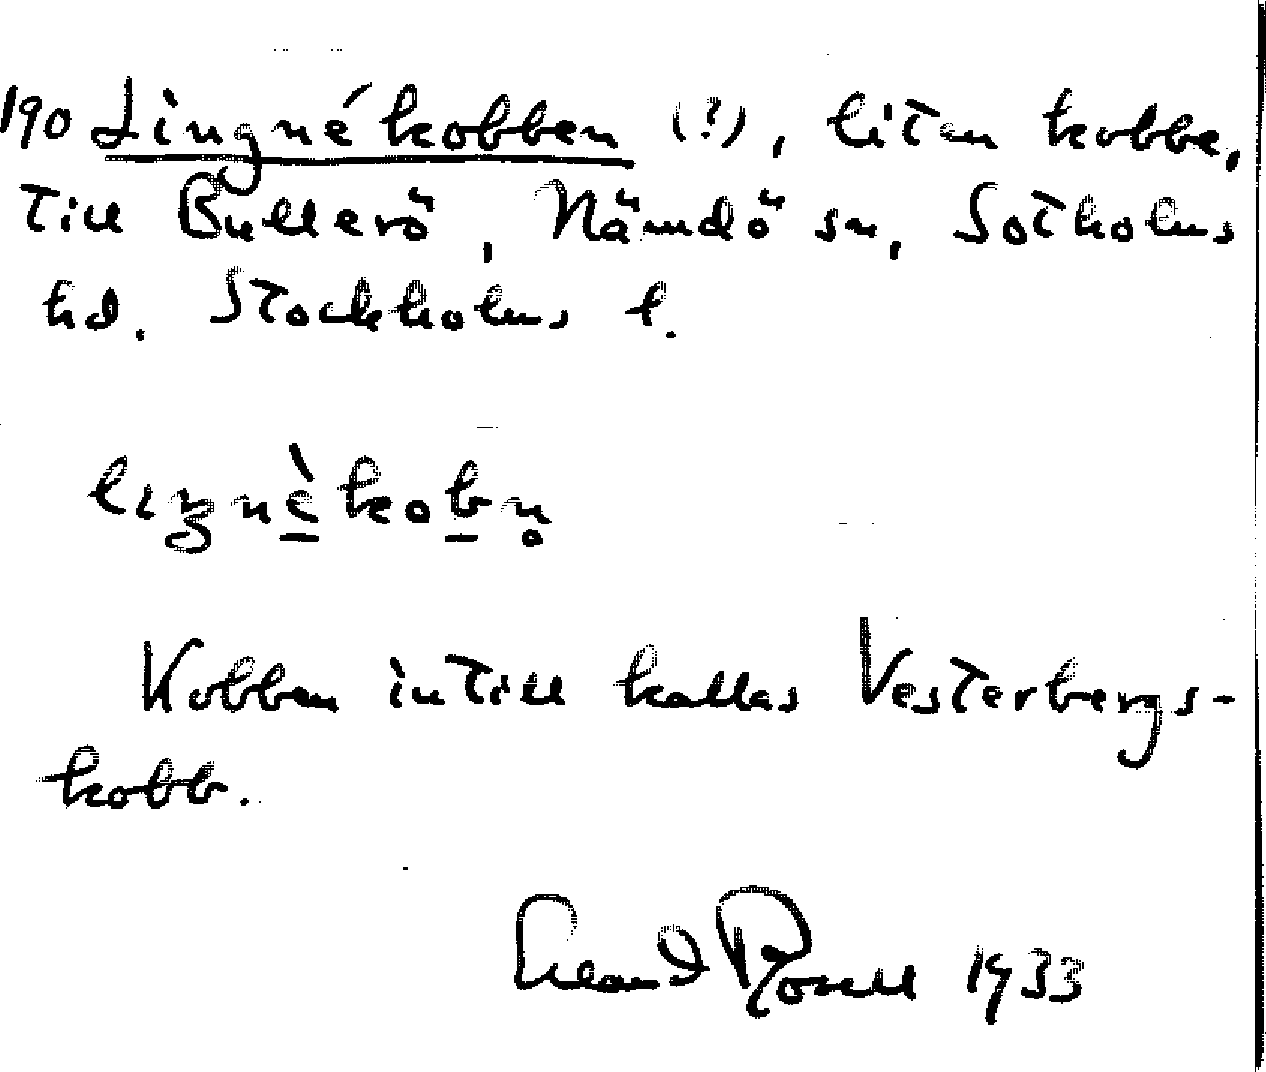 190 Lingnékobben (?), liten kobbe,
till Bullerö, Nämdö sn, Sotholms
hd. Stockholms l.
Kobben intill kallas Vesterbergs-
kobb.
Erland Rosell 1933